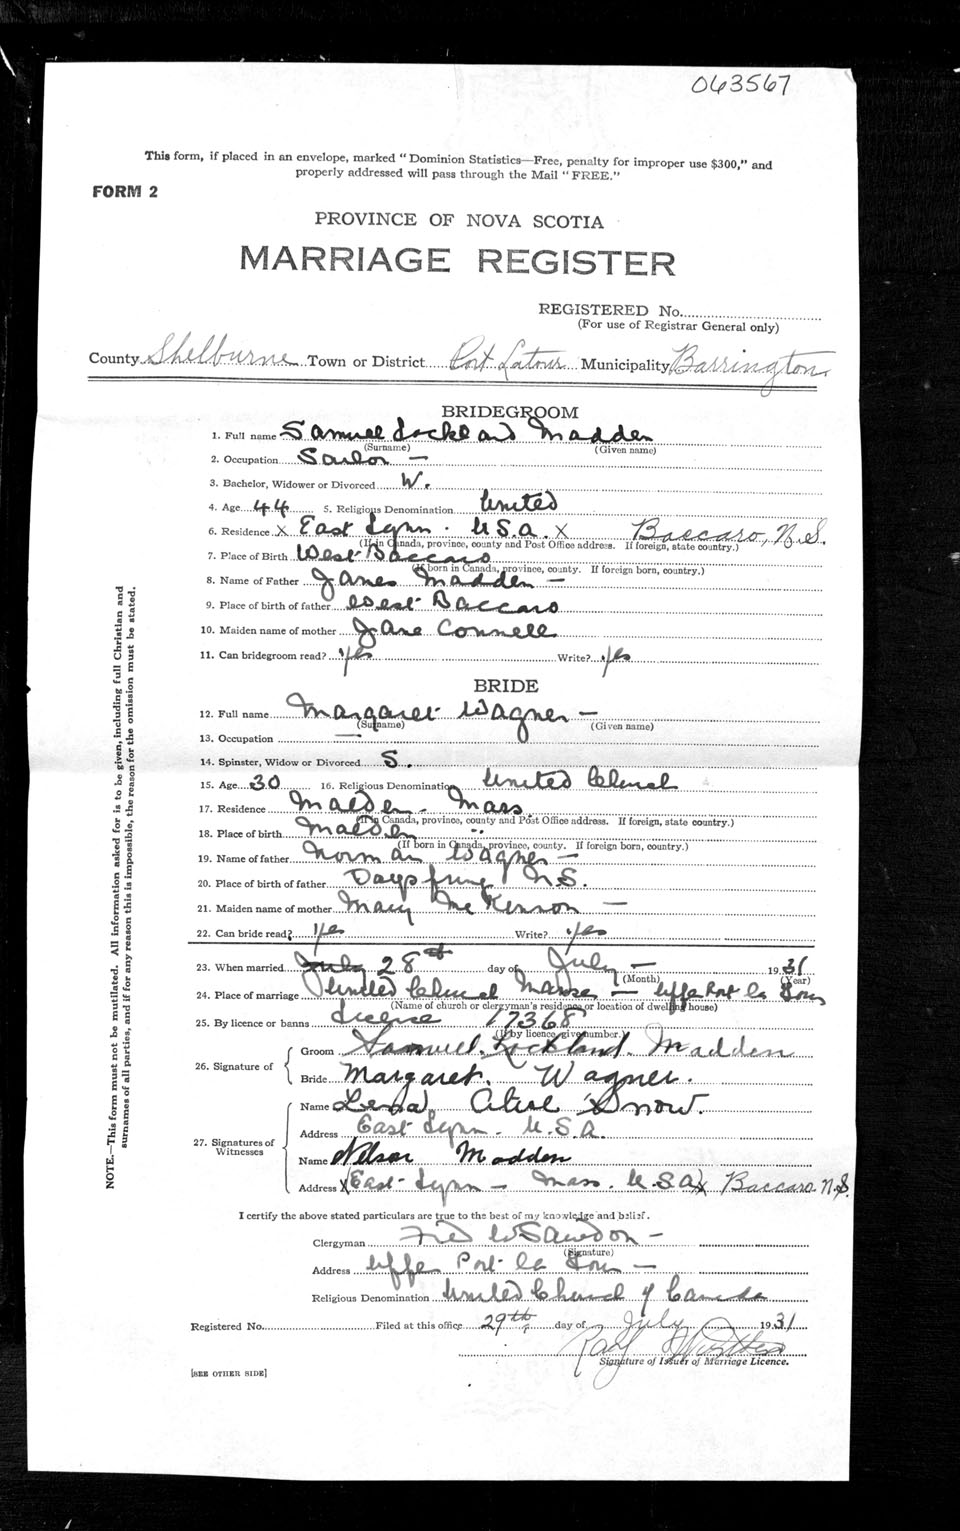 063567
This form, if placed in an envelope, marked "Dominion Statistics—Free, penalty for improper use $300," and
properly addressed will pass through the Mail "FREE."
FORM 2
PROVINCE OF NOVA SCOTIA
MARRIAGE REGISTER
REGISTERED No.
(For use of Registrar General only)
County Shelburne Town or District Port Latour Municipality Barrington
BRIDEGROOM
1. Full name Samuel Lockland Madden
(Surname) (Given name)
2. Occupation Sailor —
3. Bachelor, Widower or Divorced W.
4. Age 44 5. Religious Denomination United
6. Residence x East Lynn. U.S.A. x Baccaro, N.S.
(If in Canada, province, county and Post Office address. If foreign, state country.)
7. Place of Birth West Baccaro
(If born in Canada, province, county. If foreign born, country.)
8. Name of Father James Madden —
9. Place of birth of father West Baccaro
10. Maiden name of mother Jane Connell
11. Can bridegroom read? Yes Write? Yes
BRIDE
12. Full name Margaret Wagner —
(Surname) (Given name)
13. Occupation —
14. Spinster, Widow or Divorced S.
15. Age 30 16. Religious Denomination United Church
17. Residence Malden - Mass
(If in Canada, province, county and Post Office address. If foreign, state country.)
18. Place of birth Malden "
(If born in Canada, province, county. If foreign born, country.)
19. Name of father Norman Wagner —
20. Place of birth of father N.S.
21. Maiden name of mother Mary McKennon —
22. Can bride read? Yes Write? Yes
23. When married July 28th day of July — 1931
(Month) (Year)
24. Place of marriage United Church Manse — Upper Port La Tour
(Name of church or clergyman's residence or location of dwelling house)
25. By licence or banns Licence 17368
(If by licence, give number.)
26. Signature of
Groom Samuel Lockland Madden
Bride Margaret Wagner.
27. Signatures of Witnesses
Name Alice Snow.
Address East Lynn. U.S.A.
Name Nelson Madden
Address x(East Lynn — Mass. U.S.A)x Baccaro N.S.
I certify the above stated particulars are true to the best of my knowledge and belief.
Clergyman
(Signature)
Address Upper Port La Tour —
Religious Denomination United Church of Canada
Registered No. Filed at this office 29th day of July 1931
Ray
Signature of Issuer of Marriage Licence.
[SEE OTHER SIDE]
NOTE.—This form must not be mutilated. All information asked for is to be given, including full Christian and
surnames of all parties, and if for any reason this is impossible, the reason for the omission must be stated.